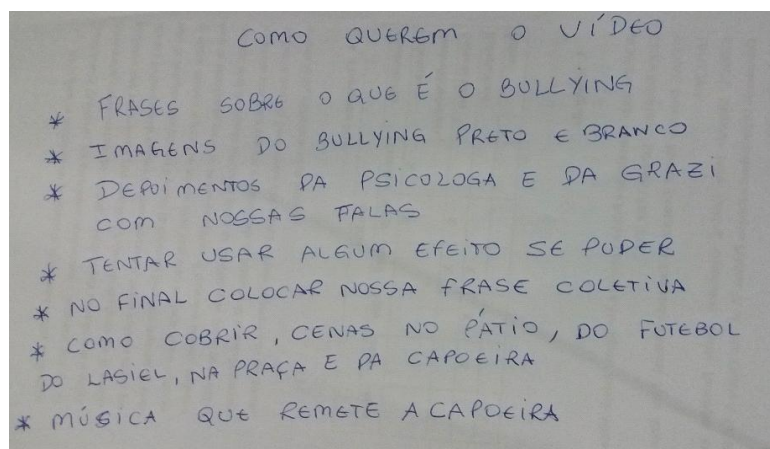 COMO QUEREM O VÍDEO
* FRASES SOBRE O QUE É O BULLYING
* IMAGENS DO BULLYING PRETO E BRANCO
* DEPOIMENTOS DA PSICOLOGA E DA GRAZI
COM NOSSAS FALAS
* TENTAR USAR ALGUM EFEITO SE PUDER
* NO FINAL COLOCAR NOSSA FRASE COLETIVA
* COMO COBRIR, CENAS NO PÁTIO, DO FUTEBOL
DO LASIEL, NA PRAÇA E DA CAPOEIRA
* MÚSICA QUE REMETE A CAPOEIRA